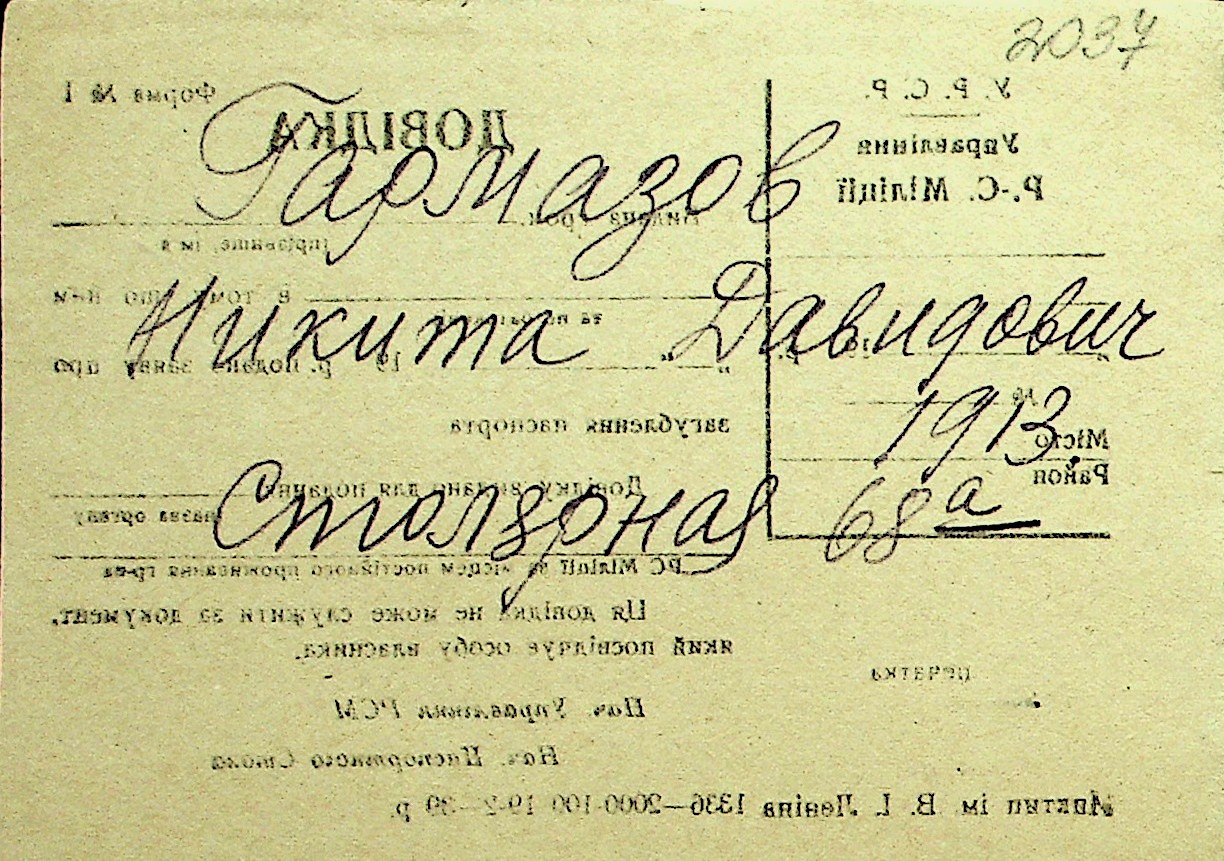 2037
Гармазов
Никита Давидович
1913.
Столярная 68 а
Форма № 1
ДОВІДКА
Видана грок.
прізвище, ім'я
в тому, що ним
19 р. подана заяву про
загублення паспорта
Довідку видано для подання
назва органу
РС Міліції за місцем постійного проживання гр-на
Ця довідка не може служити за документ,
який посвідчує особу власника.
Нач. Управління РСМ
Нач. Паспортного Стола
У. Р. С. Р.
Управління
Р.-С. Міліції
№
Місто
Район
печатка
ім. В. І. Леніна 1336—2000-100 19-2-39 р.